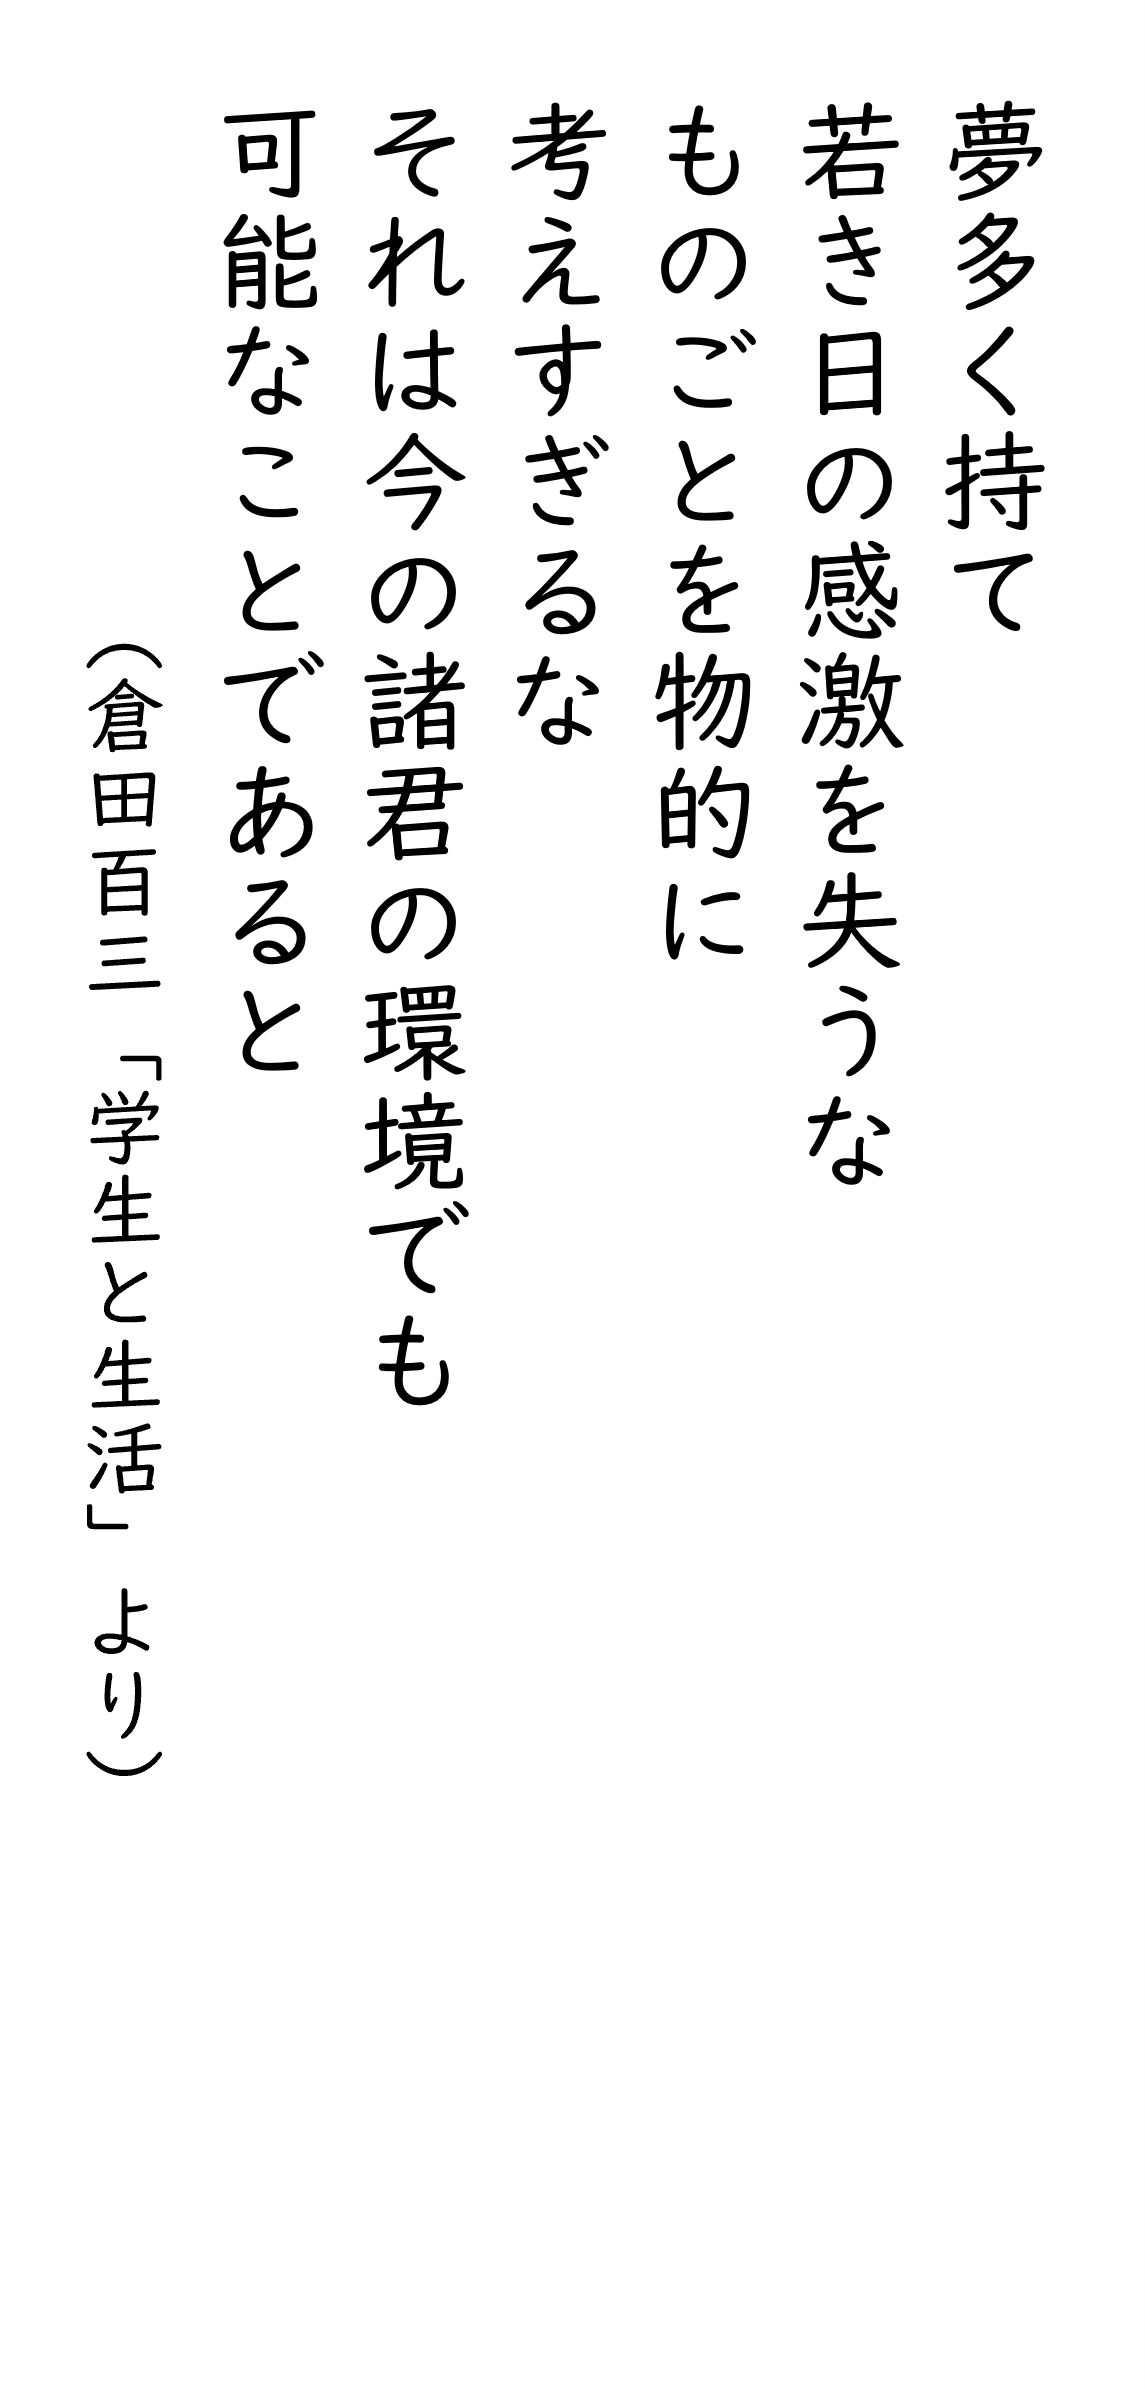 夢多く持て
若き日の感激を失うな
ものごとを物的に
考えすぎるな
それは今の諸君の環境でも
可能なことであると
（倉田百三「学生と生活」より）